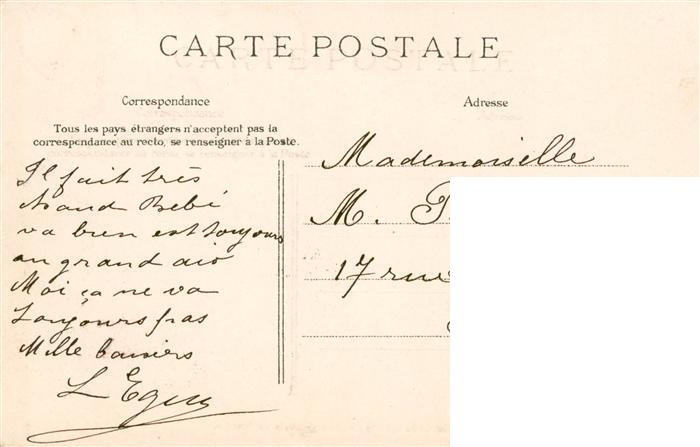 CARTE POSTALE
Correspondance
Tous les pays étrangers n'acceptent pas la
correspondance au recto, se renseigner à la Poste.
Il fait très
chaud Bébé
va bien est toujours
au grand air
Moi ça ne va
toujours pas
Mille baisers
Adresse
Mademoiselle
M.
17 rue